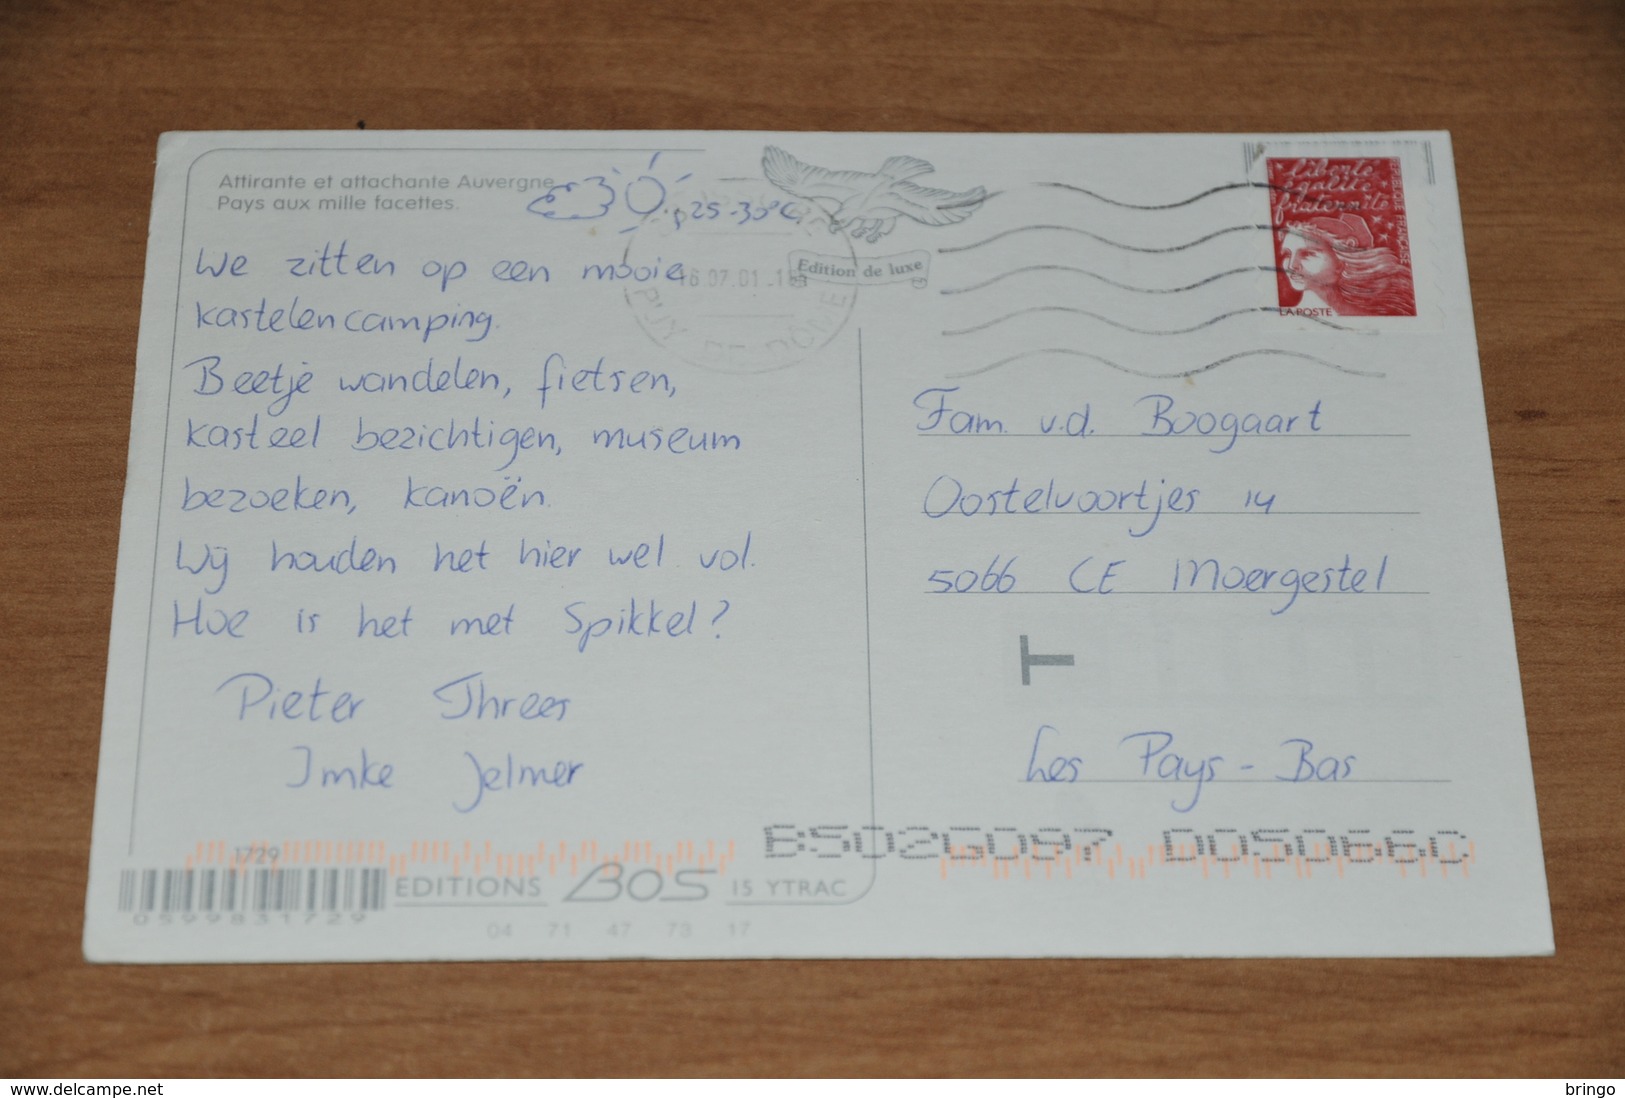 Attirante et attachante Auvergne
Pays aux mille facettes.
25-30°C
We zitten op een mooie
kastelencamping.
Beetje wandelen, fietsen,
kasteel bezichtigen, museum
bezoeken, kanoën.
Wij houden het hier wel vol.
Hoe is het met Spikkel?
Pieter Threes
Imke Jelmer
Edition de luxe
16.07.01
PUY DE DÔME
liberté
égalité
fraternité
REPUBLIQUE FRANÇAISE
LA POSTE
Fam. v.d. Boogaart
Oostelvoortjes 14
5066 CE Moergestel
T
Les Pays-Bas
BS026097 D05066C
1729
EDITIONS BOS 15 YTRAC
0599831729
04 71 47 73 17
www.delcampe.net
bringo